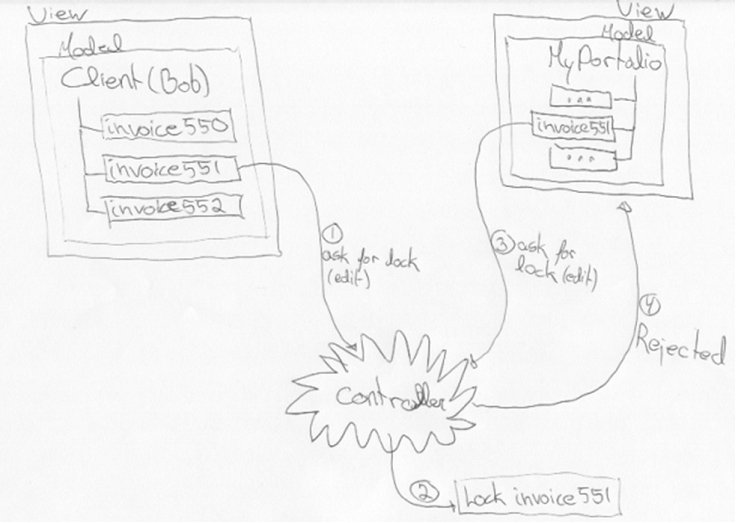 View
Model
Client (Bob)
invoice 550
invoice 551
invoice 552
View
Model
MyPortalio
...
invoice 551
...
1
ask for lock
(edit)
3 ask for
lock (edit)
4
Rejected
Controller
2
Lock invoice 551